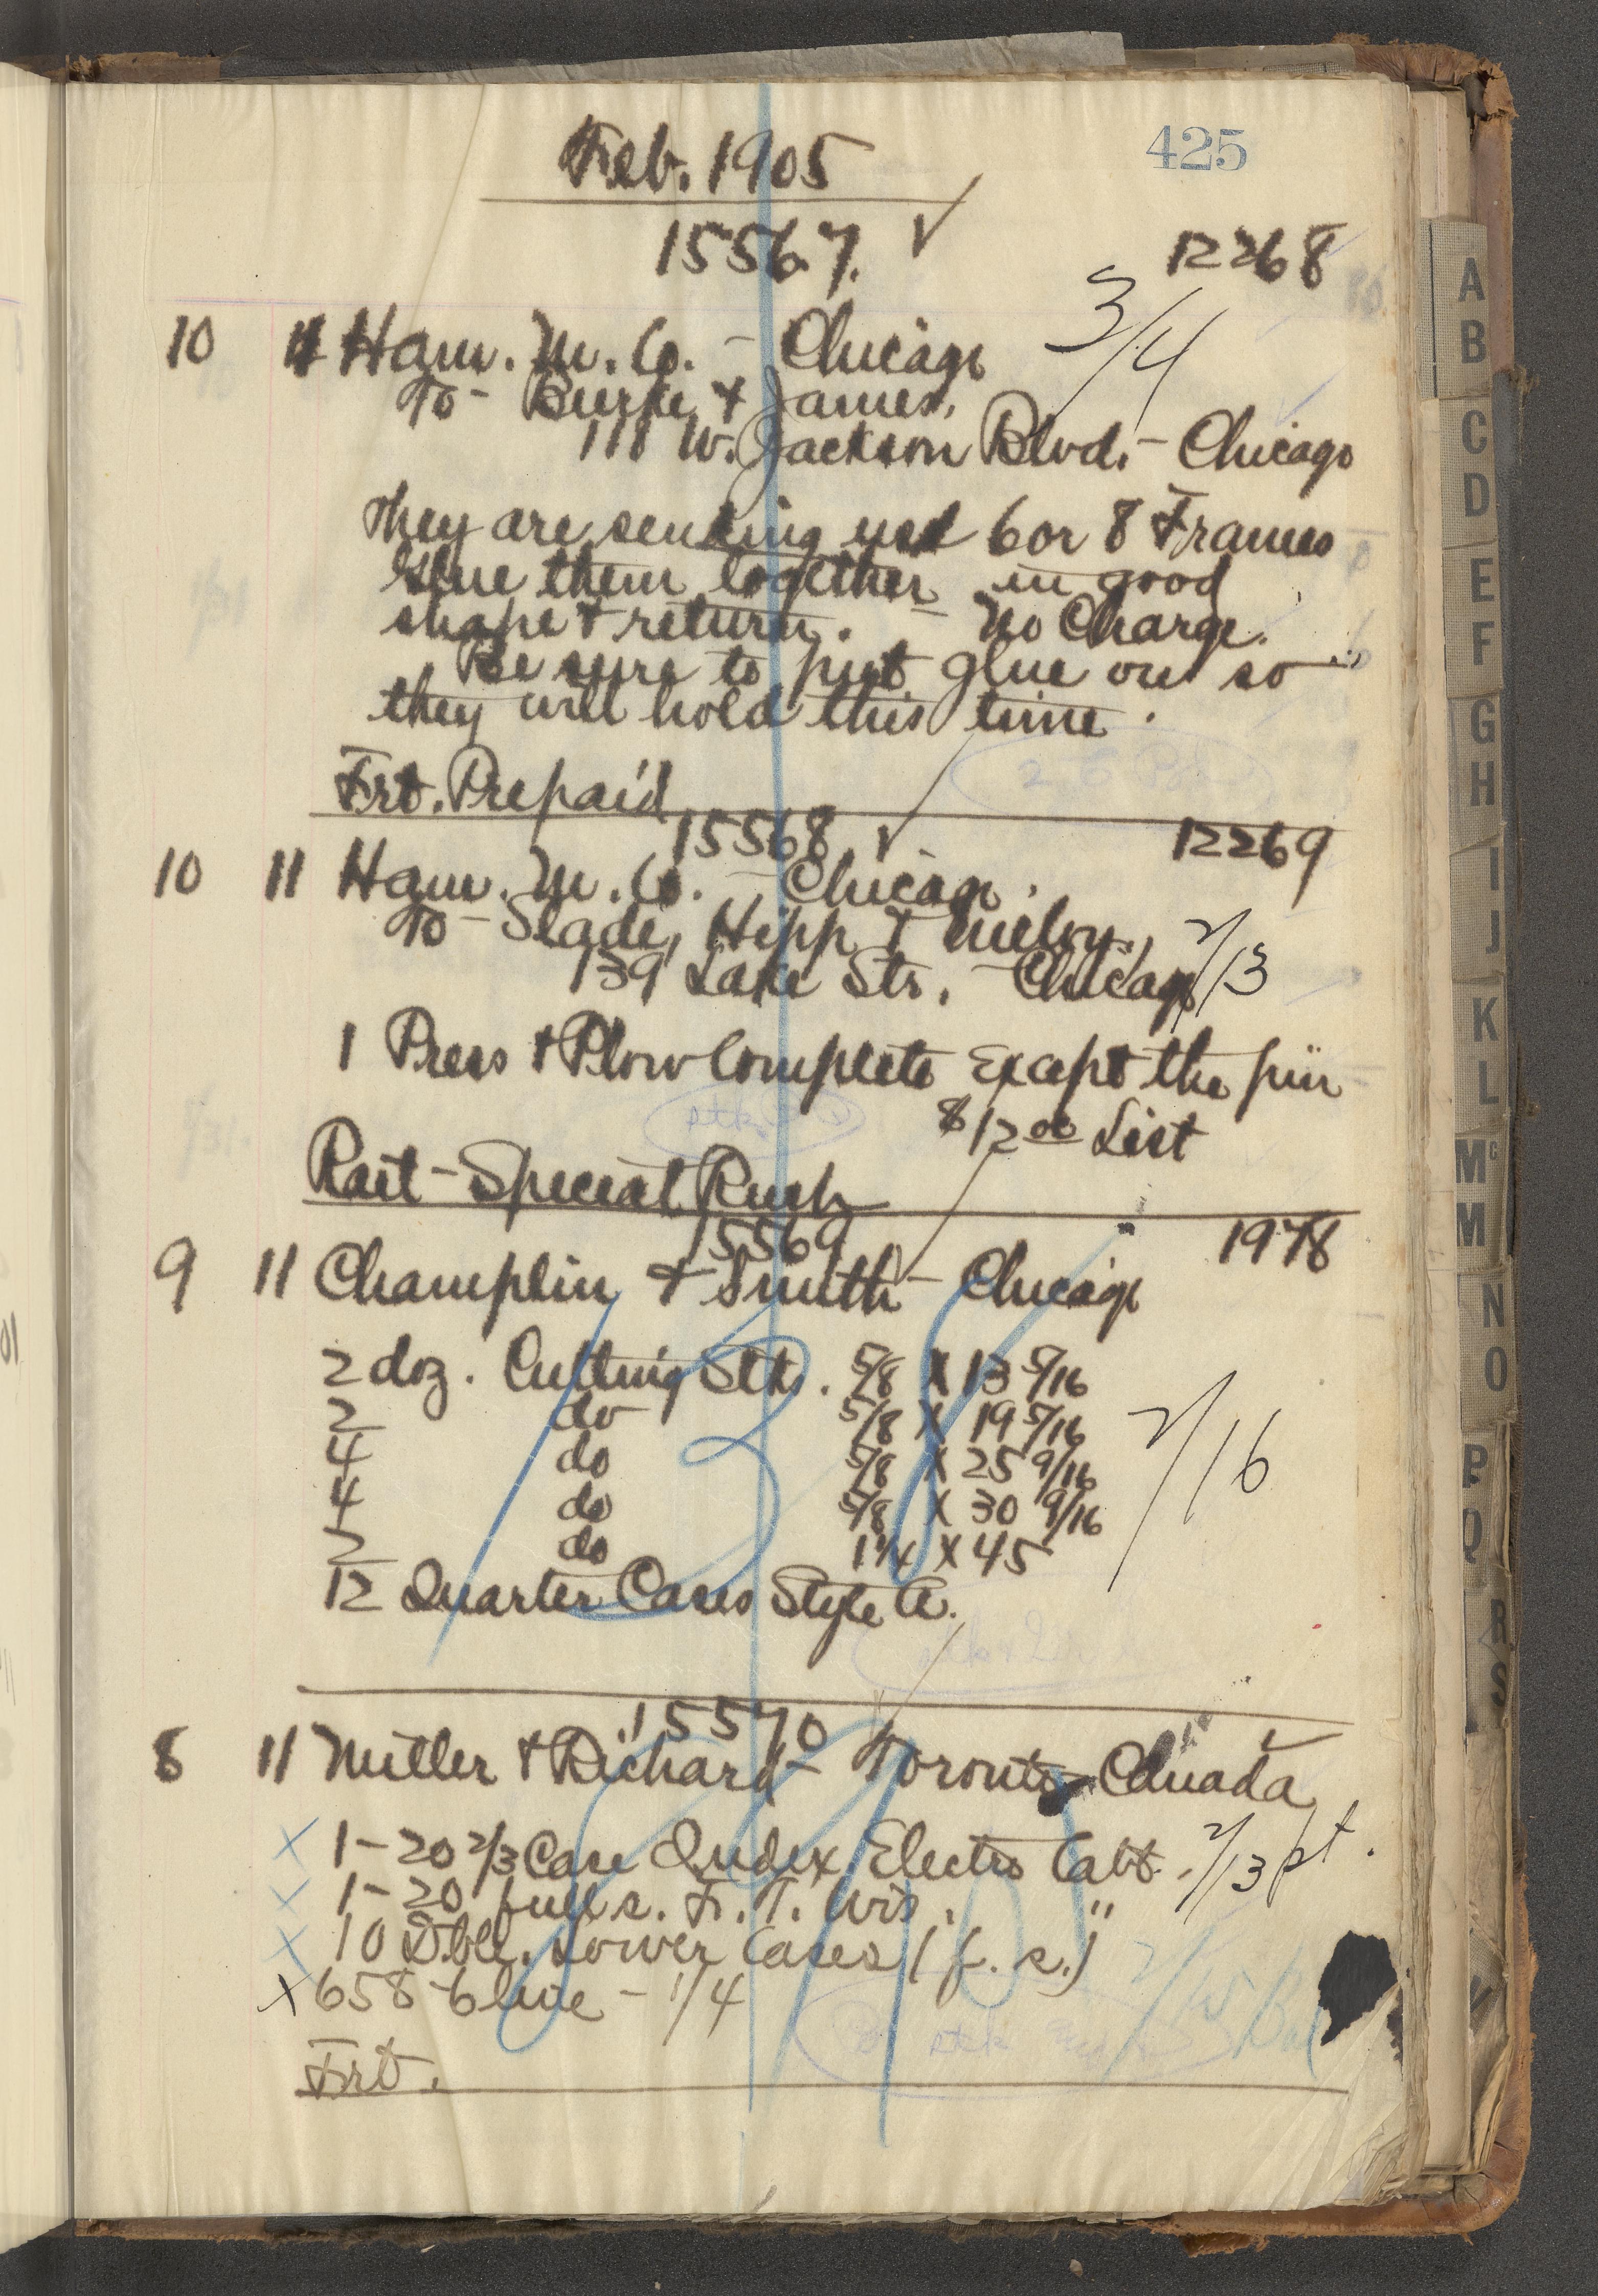 425
Feb. 1905
15567. ✓ 12268
10 11 Ham. M. Co. - Chicago 3/4
To - Burke & James,
111 W. Jackson Blvd. - Chicago
They are sending us 6 or 8 Frames
Glue them together in good
shape & return. - No Charge.
Be sure to put glue on so
they will hold this time.
Frt. Prepaid
15568 ✓ 12269
10 11 Ham. M. Co. - Chicago.
To - Slade, Hipp & Meloy, 2/13
139 Lake Str. - Chicago
1 Press & Plow Complete Except the pin
$12 00 List
Rait - Special Rush
15569 1978
9 11 Champlin & Smith - Chicago
2 doz. Cutting Stks. 5/8 X 13 5/16
2 do 5/8 X 19 5/16
4 do 5/8 X 25 9/16 2/16
4 do 5/8 X 30 9/16
2 do 1 1/4 X 45
12 Quarter Cases Style A.
15570
8 11 Miller & Richard - Toronto Canada
X 1 - 20 2/3 Case Index Electro Cabt. 2/13 pt.
X 1 - 20 full s. F. T. Wis. "
X 10 Dbl. Lower Cases (f. s.)
X 658-6 line - 1/4
Frt.
A
B
C
D
E
F
G
H
I
J
K
L
Mc
M
N
O
P
Q
R
S